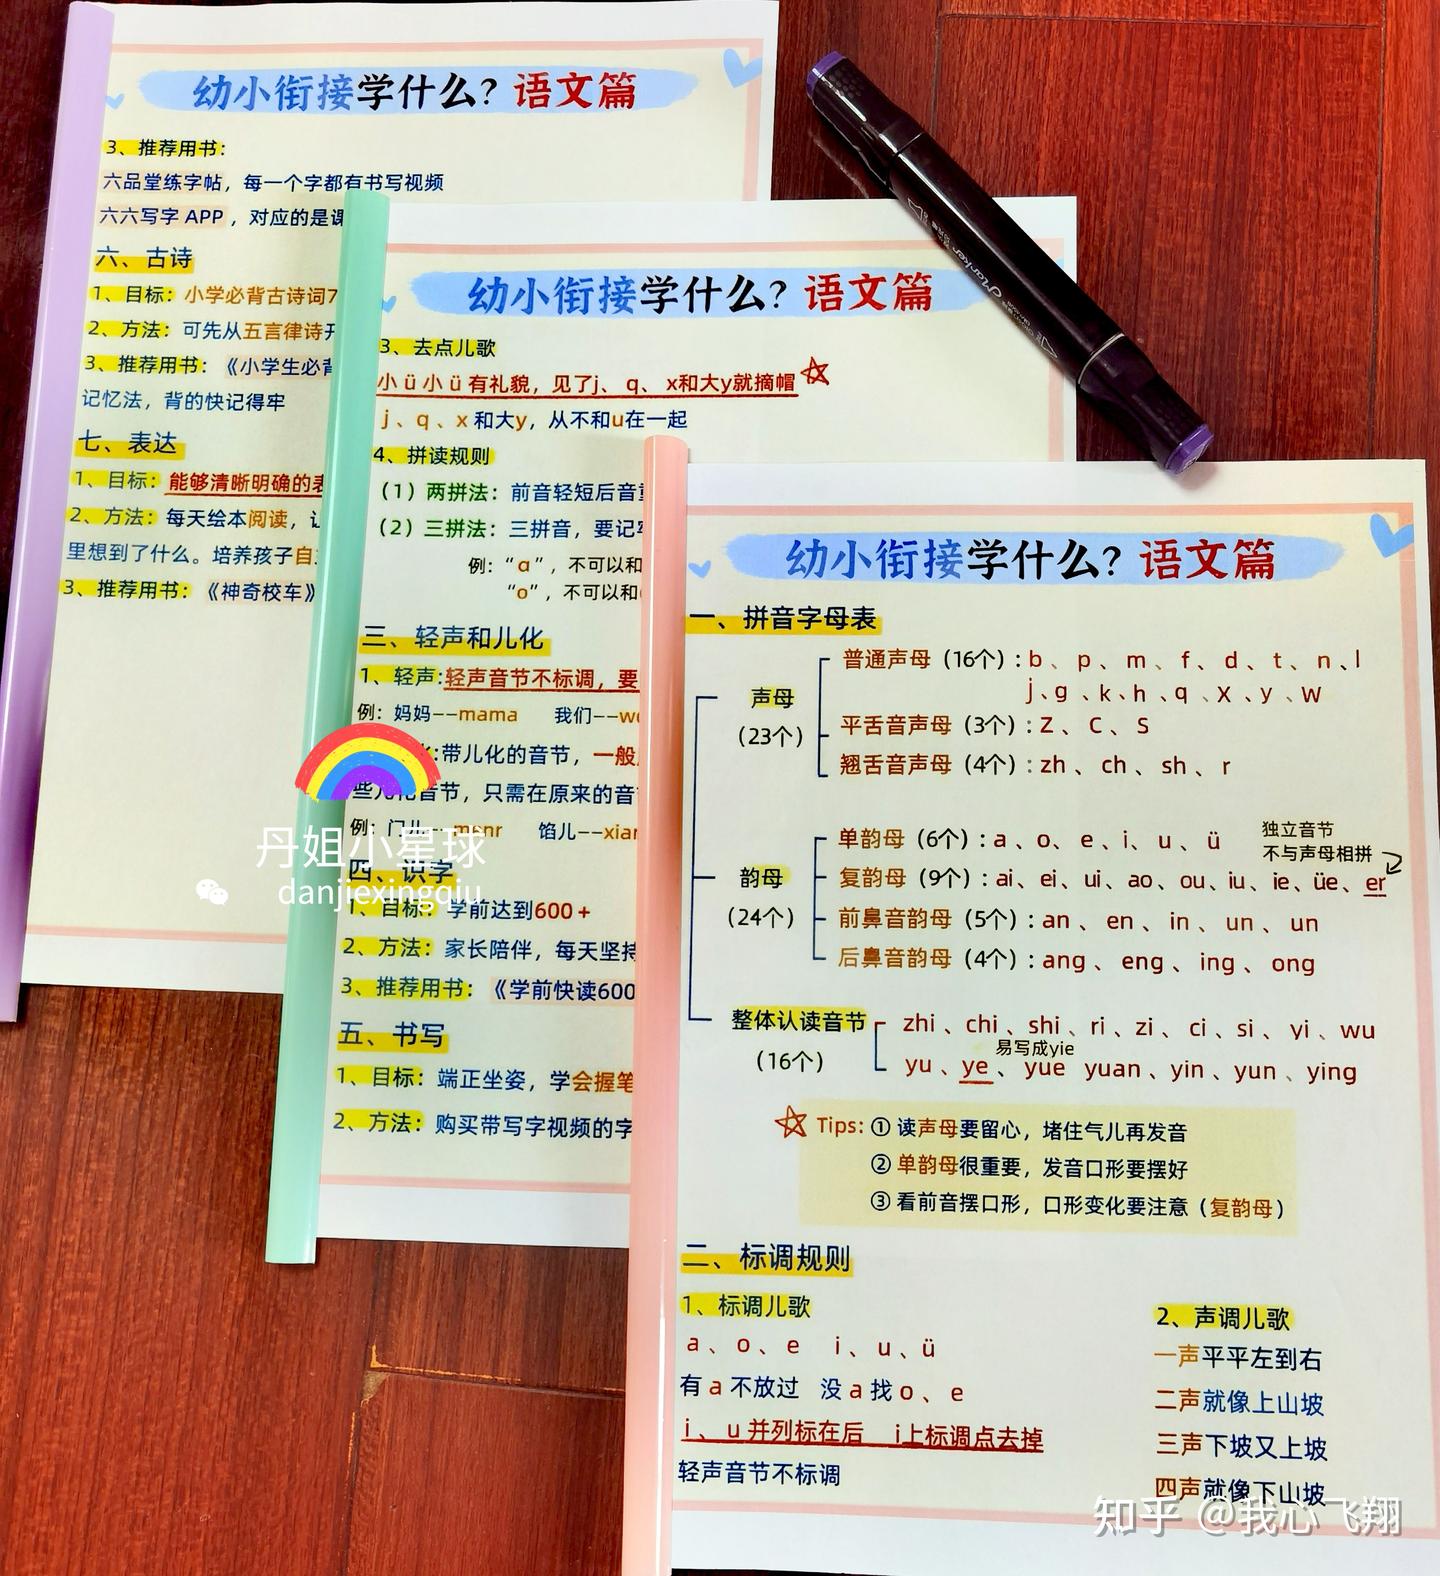 幼小衔接学什么？语文篇
3、推荐用书：
六品堂练字帖，每一个字都有书写视频
六六写字 APP ，对应的是课
六、古诗
1、目标：小学必背古诗词7
2、方法：可先从五言律诗开
3、推荐用书：《小学生必背
记忆法，背的快记得牢
七、表达
1、目标：能够清晰明确的表
2、方法：每天绘本阅读，让
里想到了什么。培养孩子自主
3、推荐用书：《神奇校车》
幼小衔接学什么？语文篇
3、去点儿歌
小 ü 小 ü 有礼貌，见了j、 q、 x和大y就摘帽
j 、q 、x 和大y，从不和u在一起
4、拼读规则
（1）两拼法：前音轻短后音重
（2）三拼法：三拼音，要记牢
例：“ɑ”，不可以和
“o”，不可以和
三、轻声和儿化
1、轻声:轻声音节不标调，要
例：妈妈——mama 我们——we
:带儿化的音节，一般
些儿化音节，只需在原来的音节
例：门儿——menr 馅儿——xian
四、识字
1、目标：学前达到600 +
2、方法：家长陪伴，每天坚持
3、推荐用书：《学前快读600
五、书写
1、目标：端正坐姿，学会握笔
2、方法：购买带写字视频的字
丹姐小星球
danjiexingqiu
幼小衔接学什么？语文篇
一、拼音字母表
声母
（23个）
普通声母（16个）: b 、 p 、 m 、 f 、 d 、 t 、 n 、l
j 、g 、k 、h 、q 、x 、y 、w
平舌音声母（3个）: z 、 c 、 s
翘舌音声母（4个）: zh 、 ch 、 sh 、 r
韵母
（24个）
单韵母（6个）: a 、 o、 e 、 i 、 u 、 ü
独立音节
不与声母相拼
复韵母（9个）: ai、 ei、 ui、 ao、 ou、 iu、 ie、 üe、 er
前鼻音韵母（5个）: an 、 en 、 in 、 un 、 un
后鼻音韵母（4个）: ang 、 eng 、 ing 、 ong
整体认读音节
（16个）
zhi 、chi 、shi 、ri 、zi 、 ci 、si 、yi 、wu
易写成yie
yu 、ye 、 yue yuan 、yin 、yun 、ying
Tips: ① 读声母要留心，堵住气儿再发音
② 单韵母很重要，发音口形要摆好
③ 看前音摆口形，口形变化要注意（复韵母）
二、标调规则
1、标调儿歌
a 、 o 、 e i 、 u 、ü
有 a 不放过 没 a 找 o 、 e
i 、 u 并列标在后 i上标调点去掉
轻声音节不标调
2、声调儿歌
一声平平左到右
二声就像上山坡
三声下坡又上坡
四声就像下山坡
知乎 @我心飞翔